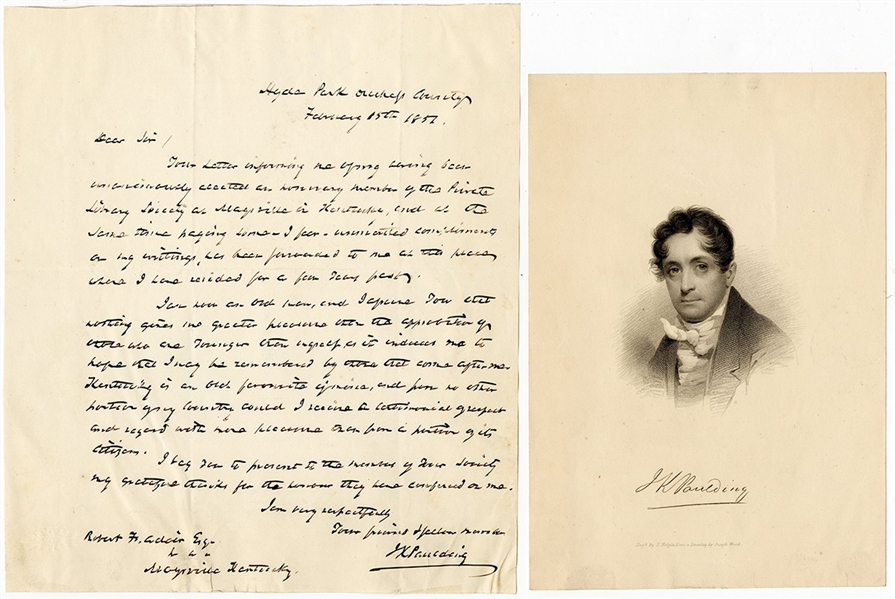 Hyde Park Duchess County
February 15th 1851.
Dear Sir /
Your Letter informing me of my having been
unanimously elected an honorary member of the Private
Library Society at Maysville in Kentucky, and at the
same time paying some - I fear - unmerited compliments
on my writings, has been forwarded to me at this place
where I have resided for a few Years past.
I am now an old man, and I assure You that
nothing gives me greater pleasure than the approbation of
those who are Younger than myself, as it induces me to
hope that I may be remembered by those that come after me.
Kentucky is an old favourite of mine, and from no other
portion of my Country could I receive a testimonial of respect
and regard with more pleasure than from a portion of its
citizens.
I beg You to present to the members of Your Society
my grateful thanks for the honour they have conferred on me.
I am very respectfully
Your friend & fellow
JK Paulding
Robert H. Adair Esqr
Maysville Kentucky.
JK Paulding